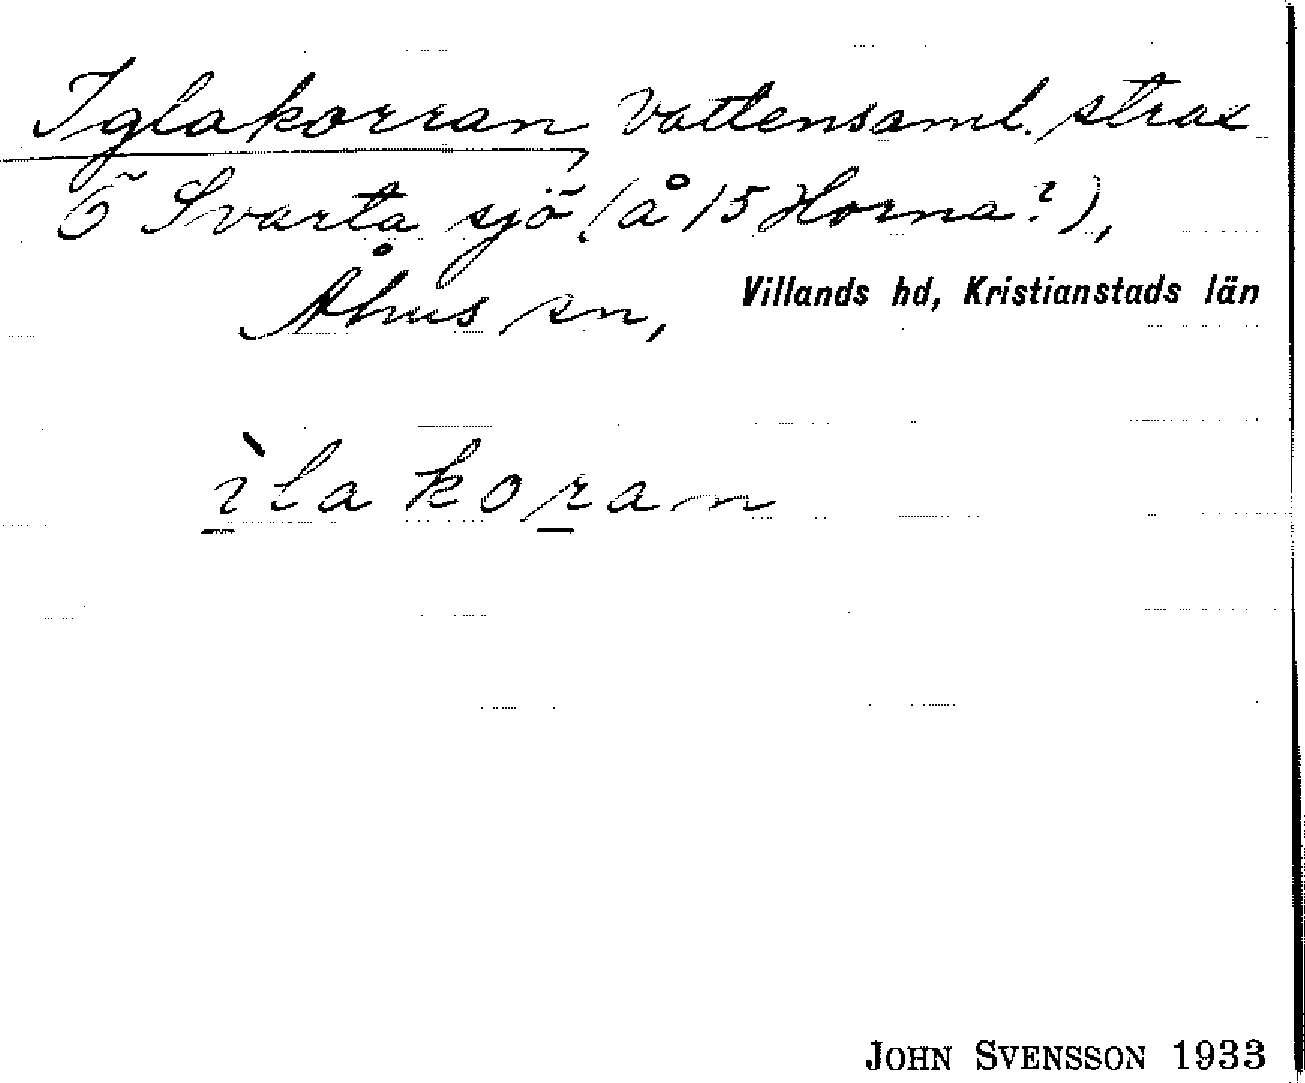 Iglakorran, Vattensaml. strax
Ö Svarta sjö (å 15 Horna?),
Åhus sn, Villands hd, Kristianstads län
ìlakoran
JOHN SVENSSON 1933